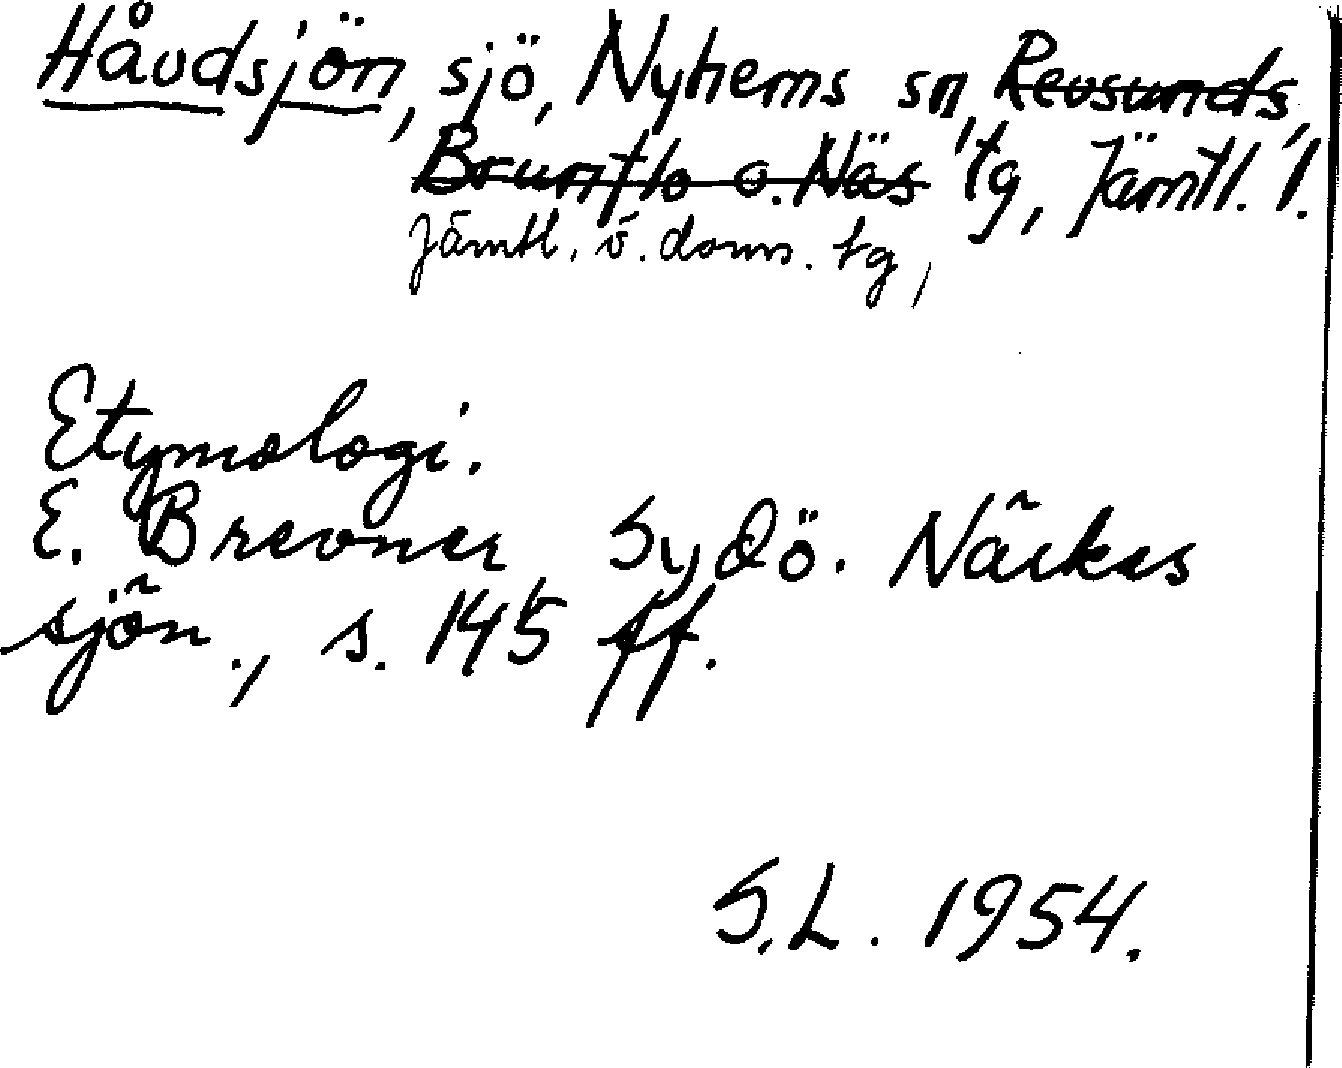 Håvdsjön, sjö, Nyhems sn, Revsunds,
Brunflo o. Näs tg, Jämtl. l.
Jämtl. v. doms. tg,
Etymologi.
E. Brevner Sydö. Närkes
sjön., s. 145 ff.
S.L. 1954.